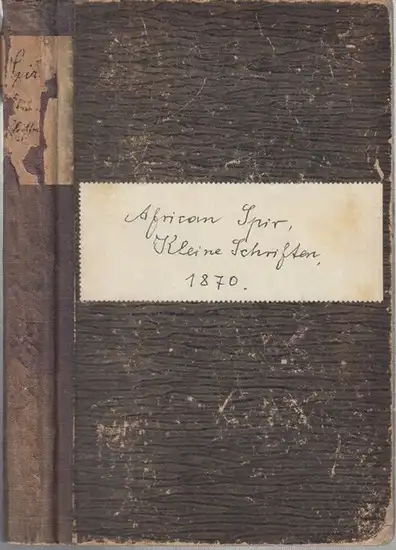 Spir
African Spir,
Kleine Schriften,
1870.